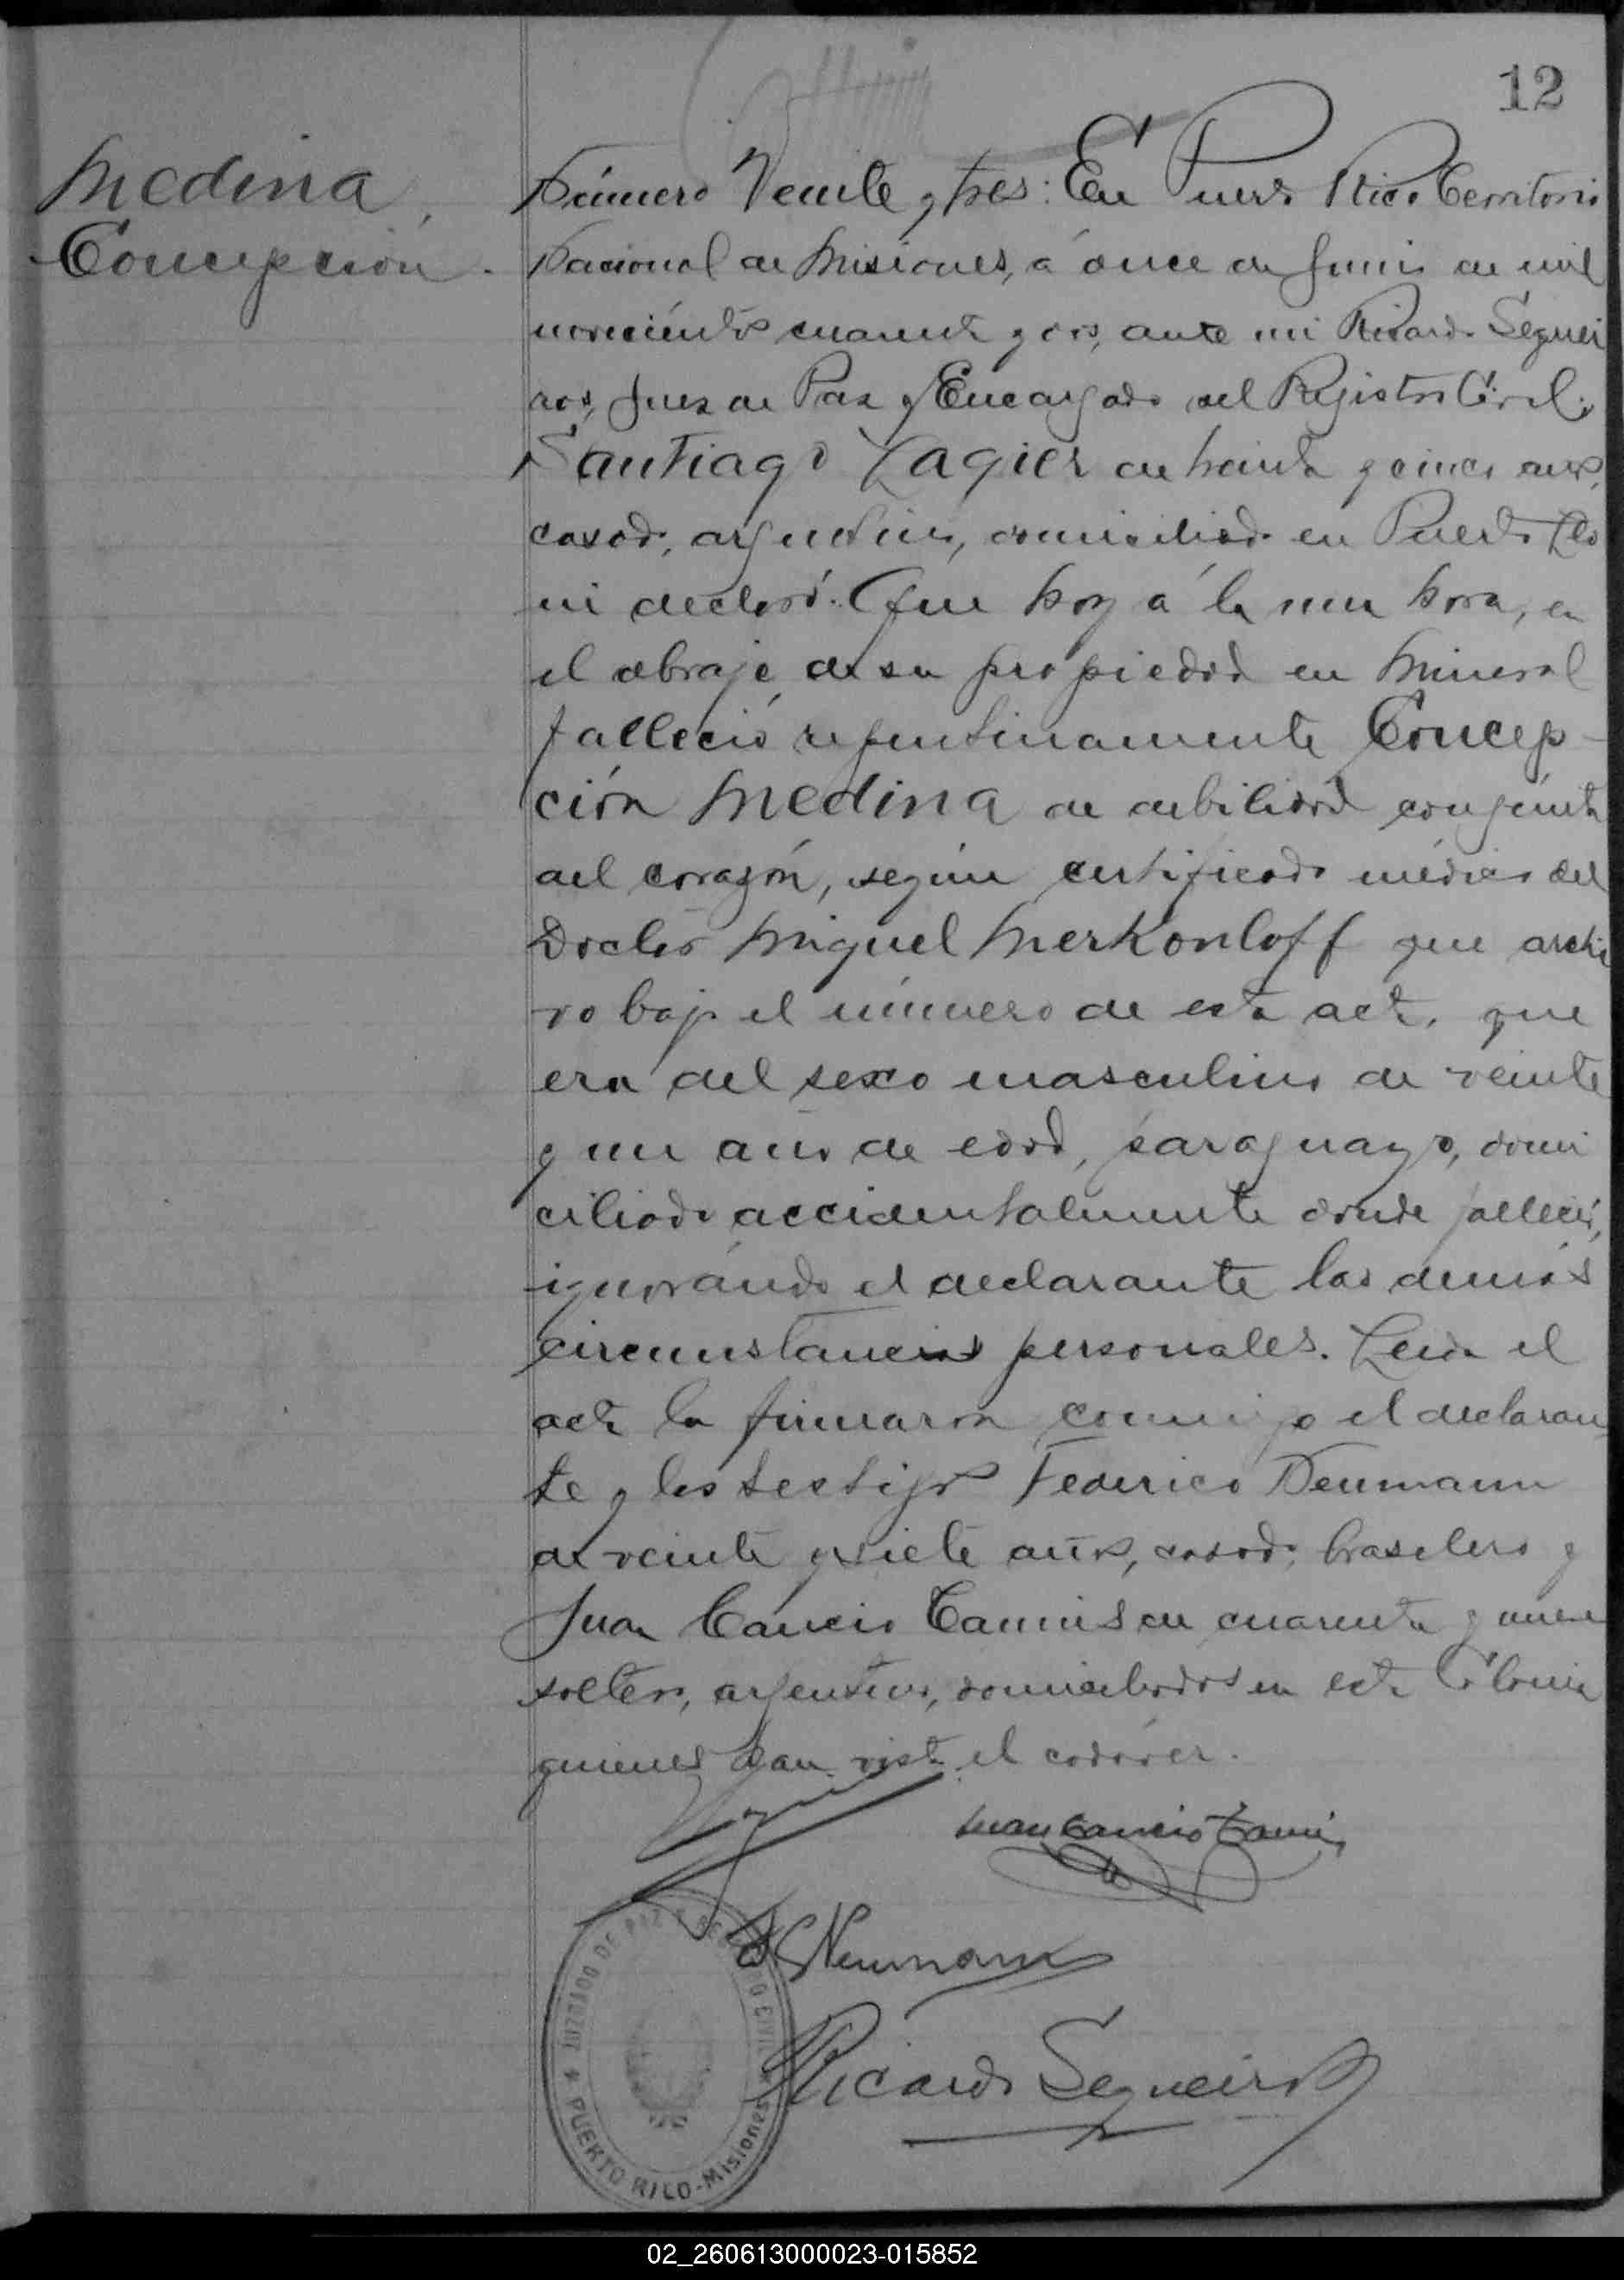 12
Medina,
Concepción.
Número Veinte y tres: En Puerto Rico Territorio
Nacional de Misiones, á once de Junio de mil
novecientos cuarenta y dos, ante mi Ricardo Seguei
ros, Juez de Paz y Encargado del Registro Civil:
Santiago Lagier de treinta y cinco años,
casado, argentino, domiciliado en Puerto Leo
ni declaró: Que hoy á la una hora, en
el obraje de su propiedad en Mineral
falleció repentinamente Concep-
ción Medina de debilidad congénita
del corazón, según certificado médico del
Doctor Miguel Merkonloff que archi
vo bajo el número de esta acta, que
era del sexo masculino de veinte
y un año de edad, paraguayo, domi
ciliado accidentalmente donde falleció,
ignorándo el declarante las demás
circunstancias personales. Leida el
acta la firmaron conmigo el declaran
te y los testigos Federico Neumann
de veinte y siete años, casado, brasilero y
Juan Cancio Camis de cuarenta y nueve
soltero, argentino, domiciliados en esta Colonia
quienes han visto el cadáver.
Juan Cancio Camis
F Neumann
Ricardo Segueiros
JUZGADO DE PAZ Y REGISTRO CIVIL
PUERTO RICO-Misiones
02_260613000023-015852